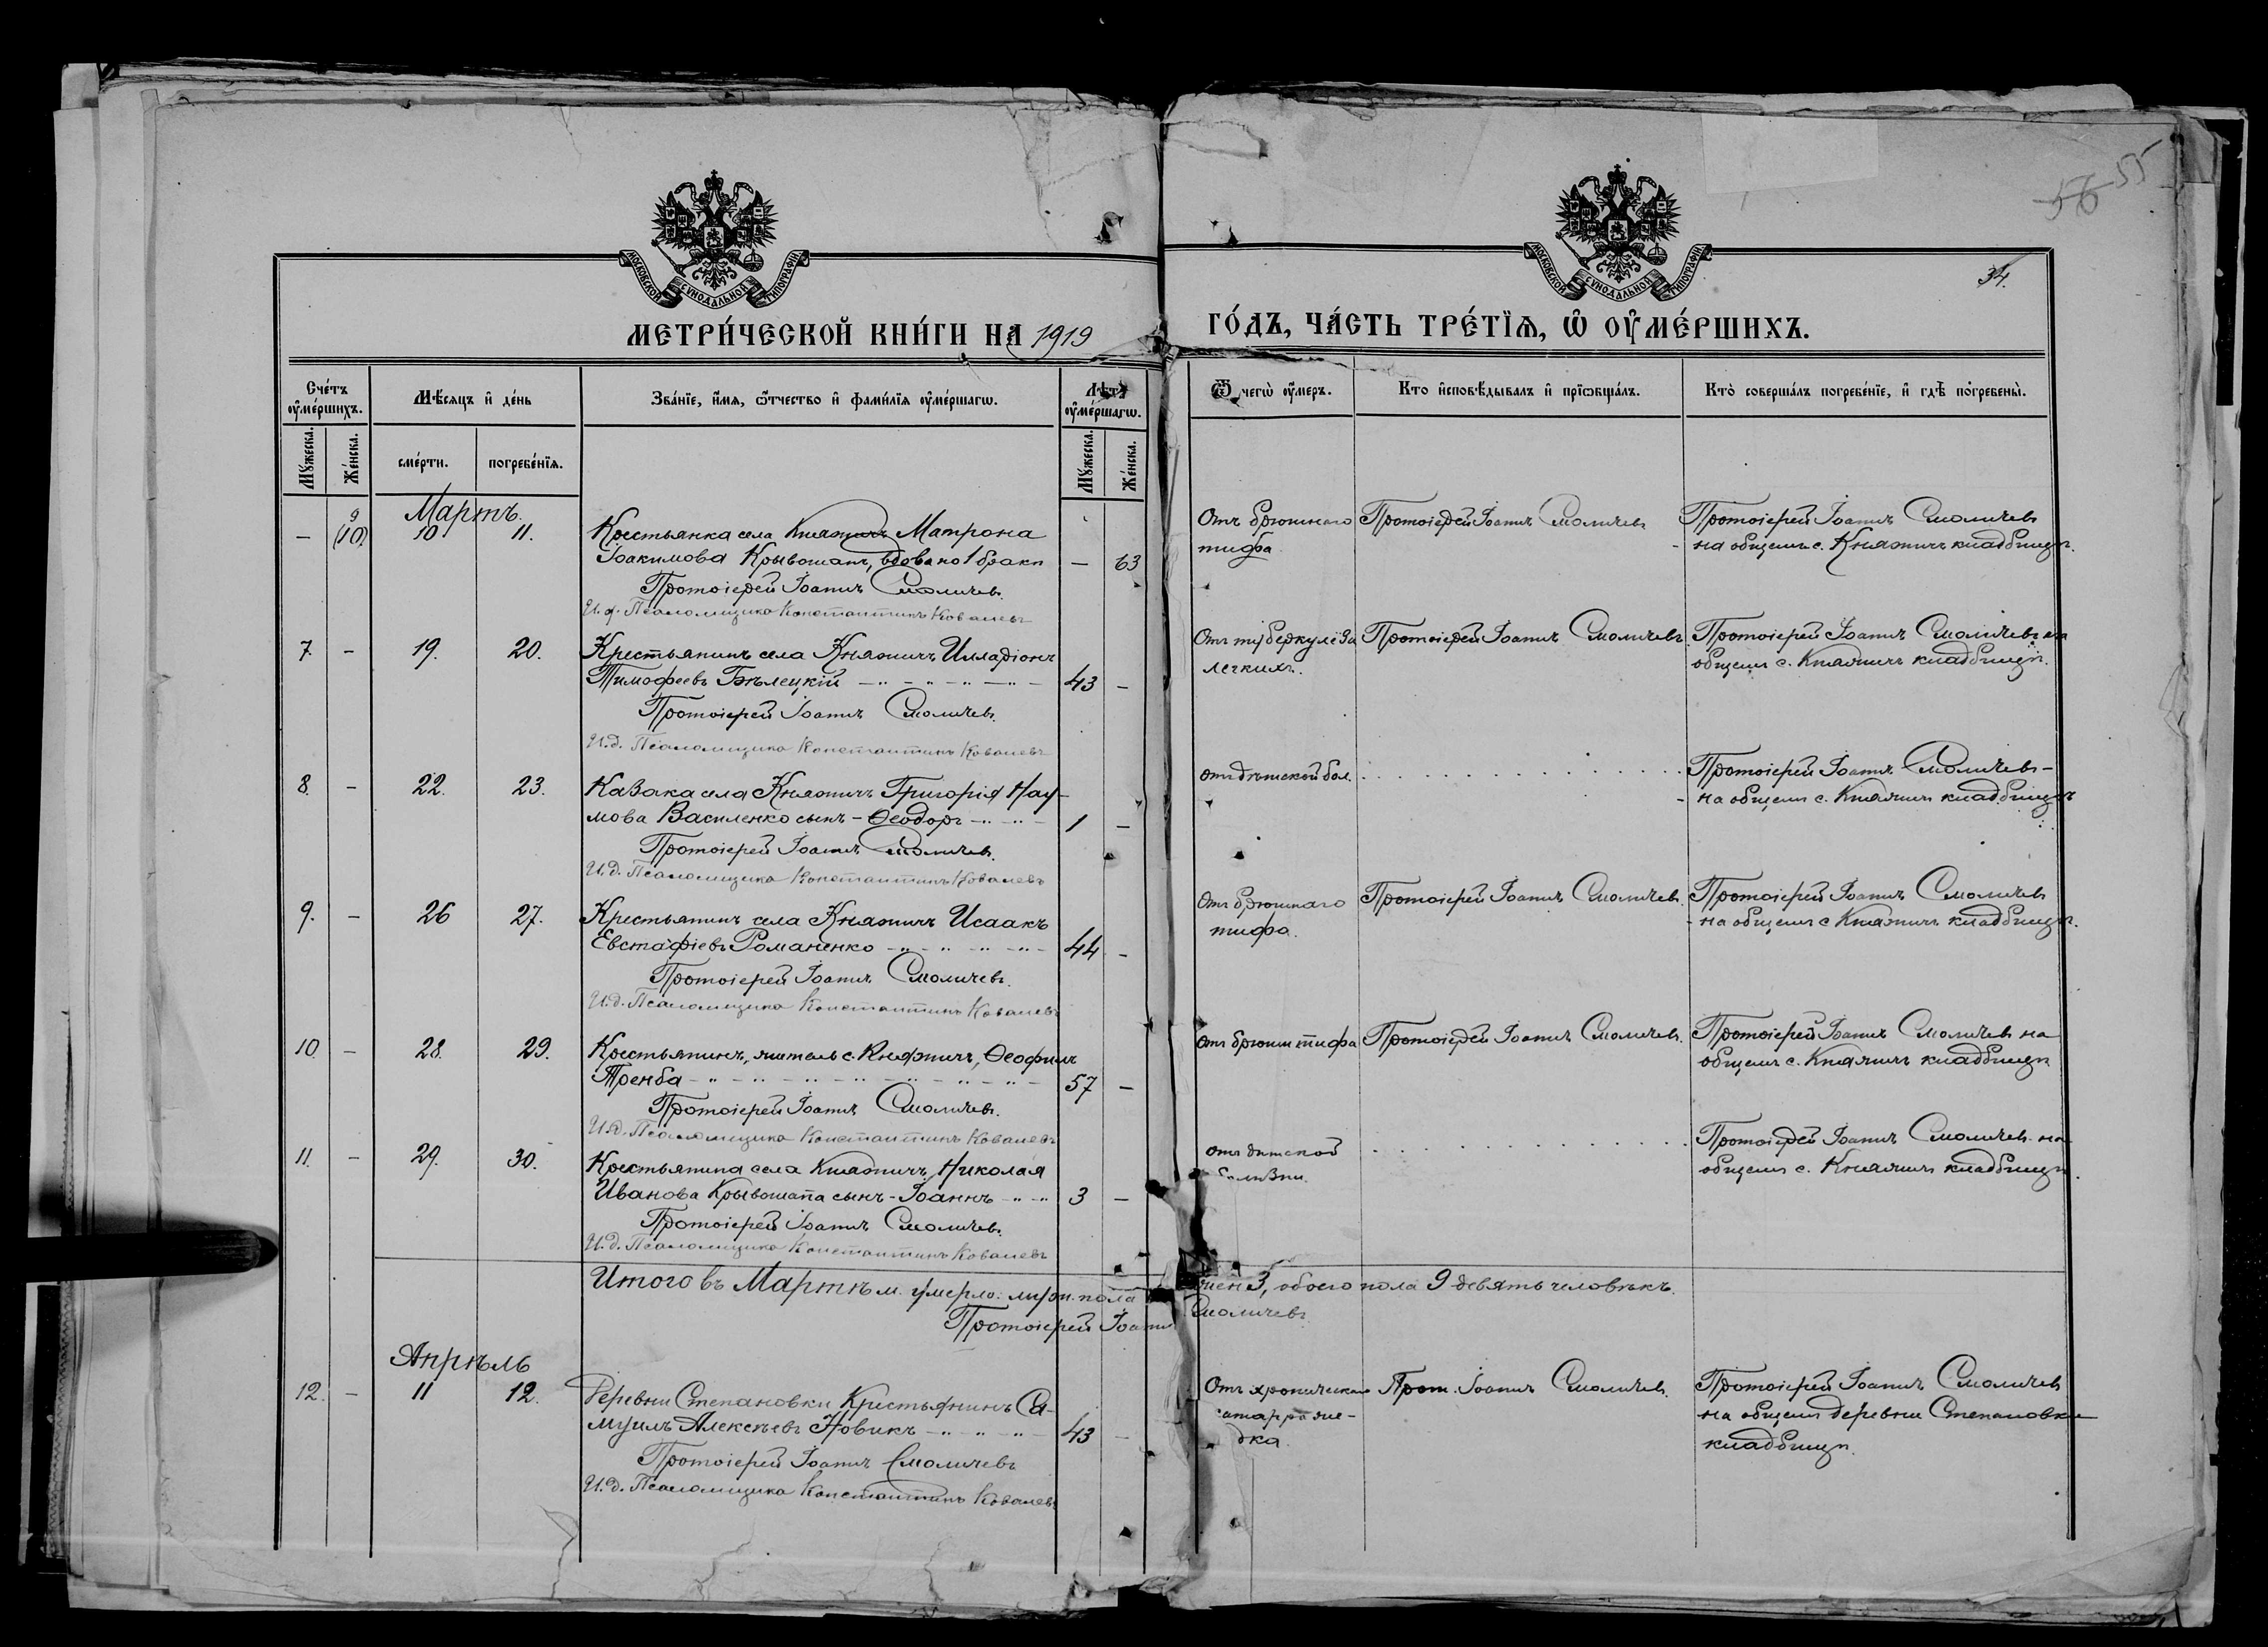 55
56
34.
МОСКОВСКОЙ СѴНОДАЛЬНОЙ ТИПОГРАФІИ
МОСКОВСКОЙ СѴНОДАЛЬНОЙ ТИПОГРАФІИ
МЕТРИ́ЧЕСКОЙ КНИ́ГИ НА 1919 ГО́ДЪ, ЧА́СТЬ ТРЕ́ТЇѦ, Ѡ҆ ОУ҆МЕ́РШИХЪ.
Сче́тъ оу҆ме́ршихъ.
Мѣ́сяцъ и҆ де́нь
Зва́нїе, и҆́мя, ѻ҆́тчество и҆ фамі́лїя оу҆ме́ршагѡ.
Лѣ́та оу҆ме́ршагѡ.
Ѿ чегѡ̀ оу҆́меръ.
Кто̀ и҆сповѣ́дывалъ и҆ прїѡбща́лъ.
Кто̀ соверша́лъ погребе́нїе, и҆ гдѣ̀ погребены̀.
Мꙋ́жеска.
Же́нска.
сме́рти.
погребе́нїя.
Мꙋ́жеска.
Же́нска.
Мартъ.
9
— (10) 10 11. Крестьянка села Княжичъ Матрона
Іоакимова Крывошапъ, вдова по 1 бракѣ — 63
Протоіерей Іоаннъ Смоличевъ.
И.д. Псаломщика Константинъ Ковалевъ
Отъ брюшнаго
тифа
Протоіерей Іоаннъ Смоличевъ
Протоіерей Іоаннъ Смоличевъ
- на общемъ с. Княжичъ кладбищѣ.
7. – 19. 20. Крестьянинъ села Княжичъ Илладіонъ
Тимофеевъ Бѣлецкій 43 –
Протоіерей Іоаннъ Смоличевъ.
И.д. Псаломщика Константинъ Ковалевъ
Отъ туберкулёза
легкихъ.
Протоіерей Іоаннъ Смоличевъ
Протоіерей Іоаннъ Смоличевъ на
общемъ с. Княжичъ кладбищѣ.
8. – 22. 23. Казака села Княжичъ Григорія Нау-
мова Василенко сынъ - Ѳеодоръ 1 –
Протоіерей Іоаннъ Смоличев.
И.д. Псаломщика Константинъ Ковалевъ
отъ дѣтской бол.
Протоіерей Іоаннъ Смоличевъ -
- на общемъ с. Княжичъ кладбищѣ
9. – 26 27. Крестьянинъ села Княжичъ Исаакъ
Евстафіевъ Романенко 44 –
Протоіерей Іоаннъ Смоличевъ.
И.д. Псаломщика Константинъ Ковалевъ
Отъ брюшнаго
тифа.
Протоіерей Іоаннъ Смоличев.
Протоіерей Іоаннъ Смоличев
- на общемъ с Княжичъ кладбищѣ.
10. – 28. 29. Крестьянинъ, житель с. Княжичъ, Ѳеофилъ
Тренба 57 –
Протоіерей Іоаннъ Смоличев.
И.д. Псаломщика Константинъ Ковалевъ
Отъ брюшн тифа
Протоіерей Іоаннъ Смоличев.
Протоіерей Іоаннъ Смоличев на
общемъ с. Княжичъ кладбищѣ
11. – 29. 30. Крестьянина села Княжичъ, Николая
Иванова Крывошапа сынъ - Іоаннъ 3 –
Протоіерей Іоаннъ Смоличев.
И.д. Псаломщика Константинъ Ковалевъ
отъ дѣтской
болѣзни.
Протоіерей Іоаннъ Смоличев на
общемъ с. Княжичъ кладбищѣ
Итого въ Мартѣ м. умерло: муж. пола жен 3, обоего пола 9 девять человѣкъ.
Протоіерей Іоаннъ Смоличевъ
Апрѣль
12. – 11 12. Деревни Степановки Крестьянинъ Са-
муилъ Алексѣевъ Новикъ 43 –
Протоіерей Іоаннъ Смоличевъ
И.д. Псаломщика Константинъ Ковалевъ
Отъ хроническаго
катарра желу-
дка.
Прот. Іоаннъ Смоличев.
Протоіерей Іоаннъ Смоличев
на общемъ деревни Степановки
кладбищѣ.